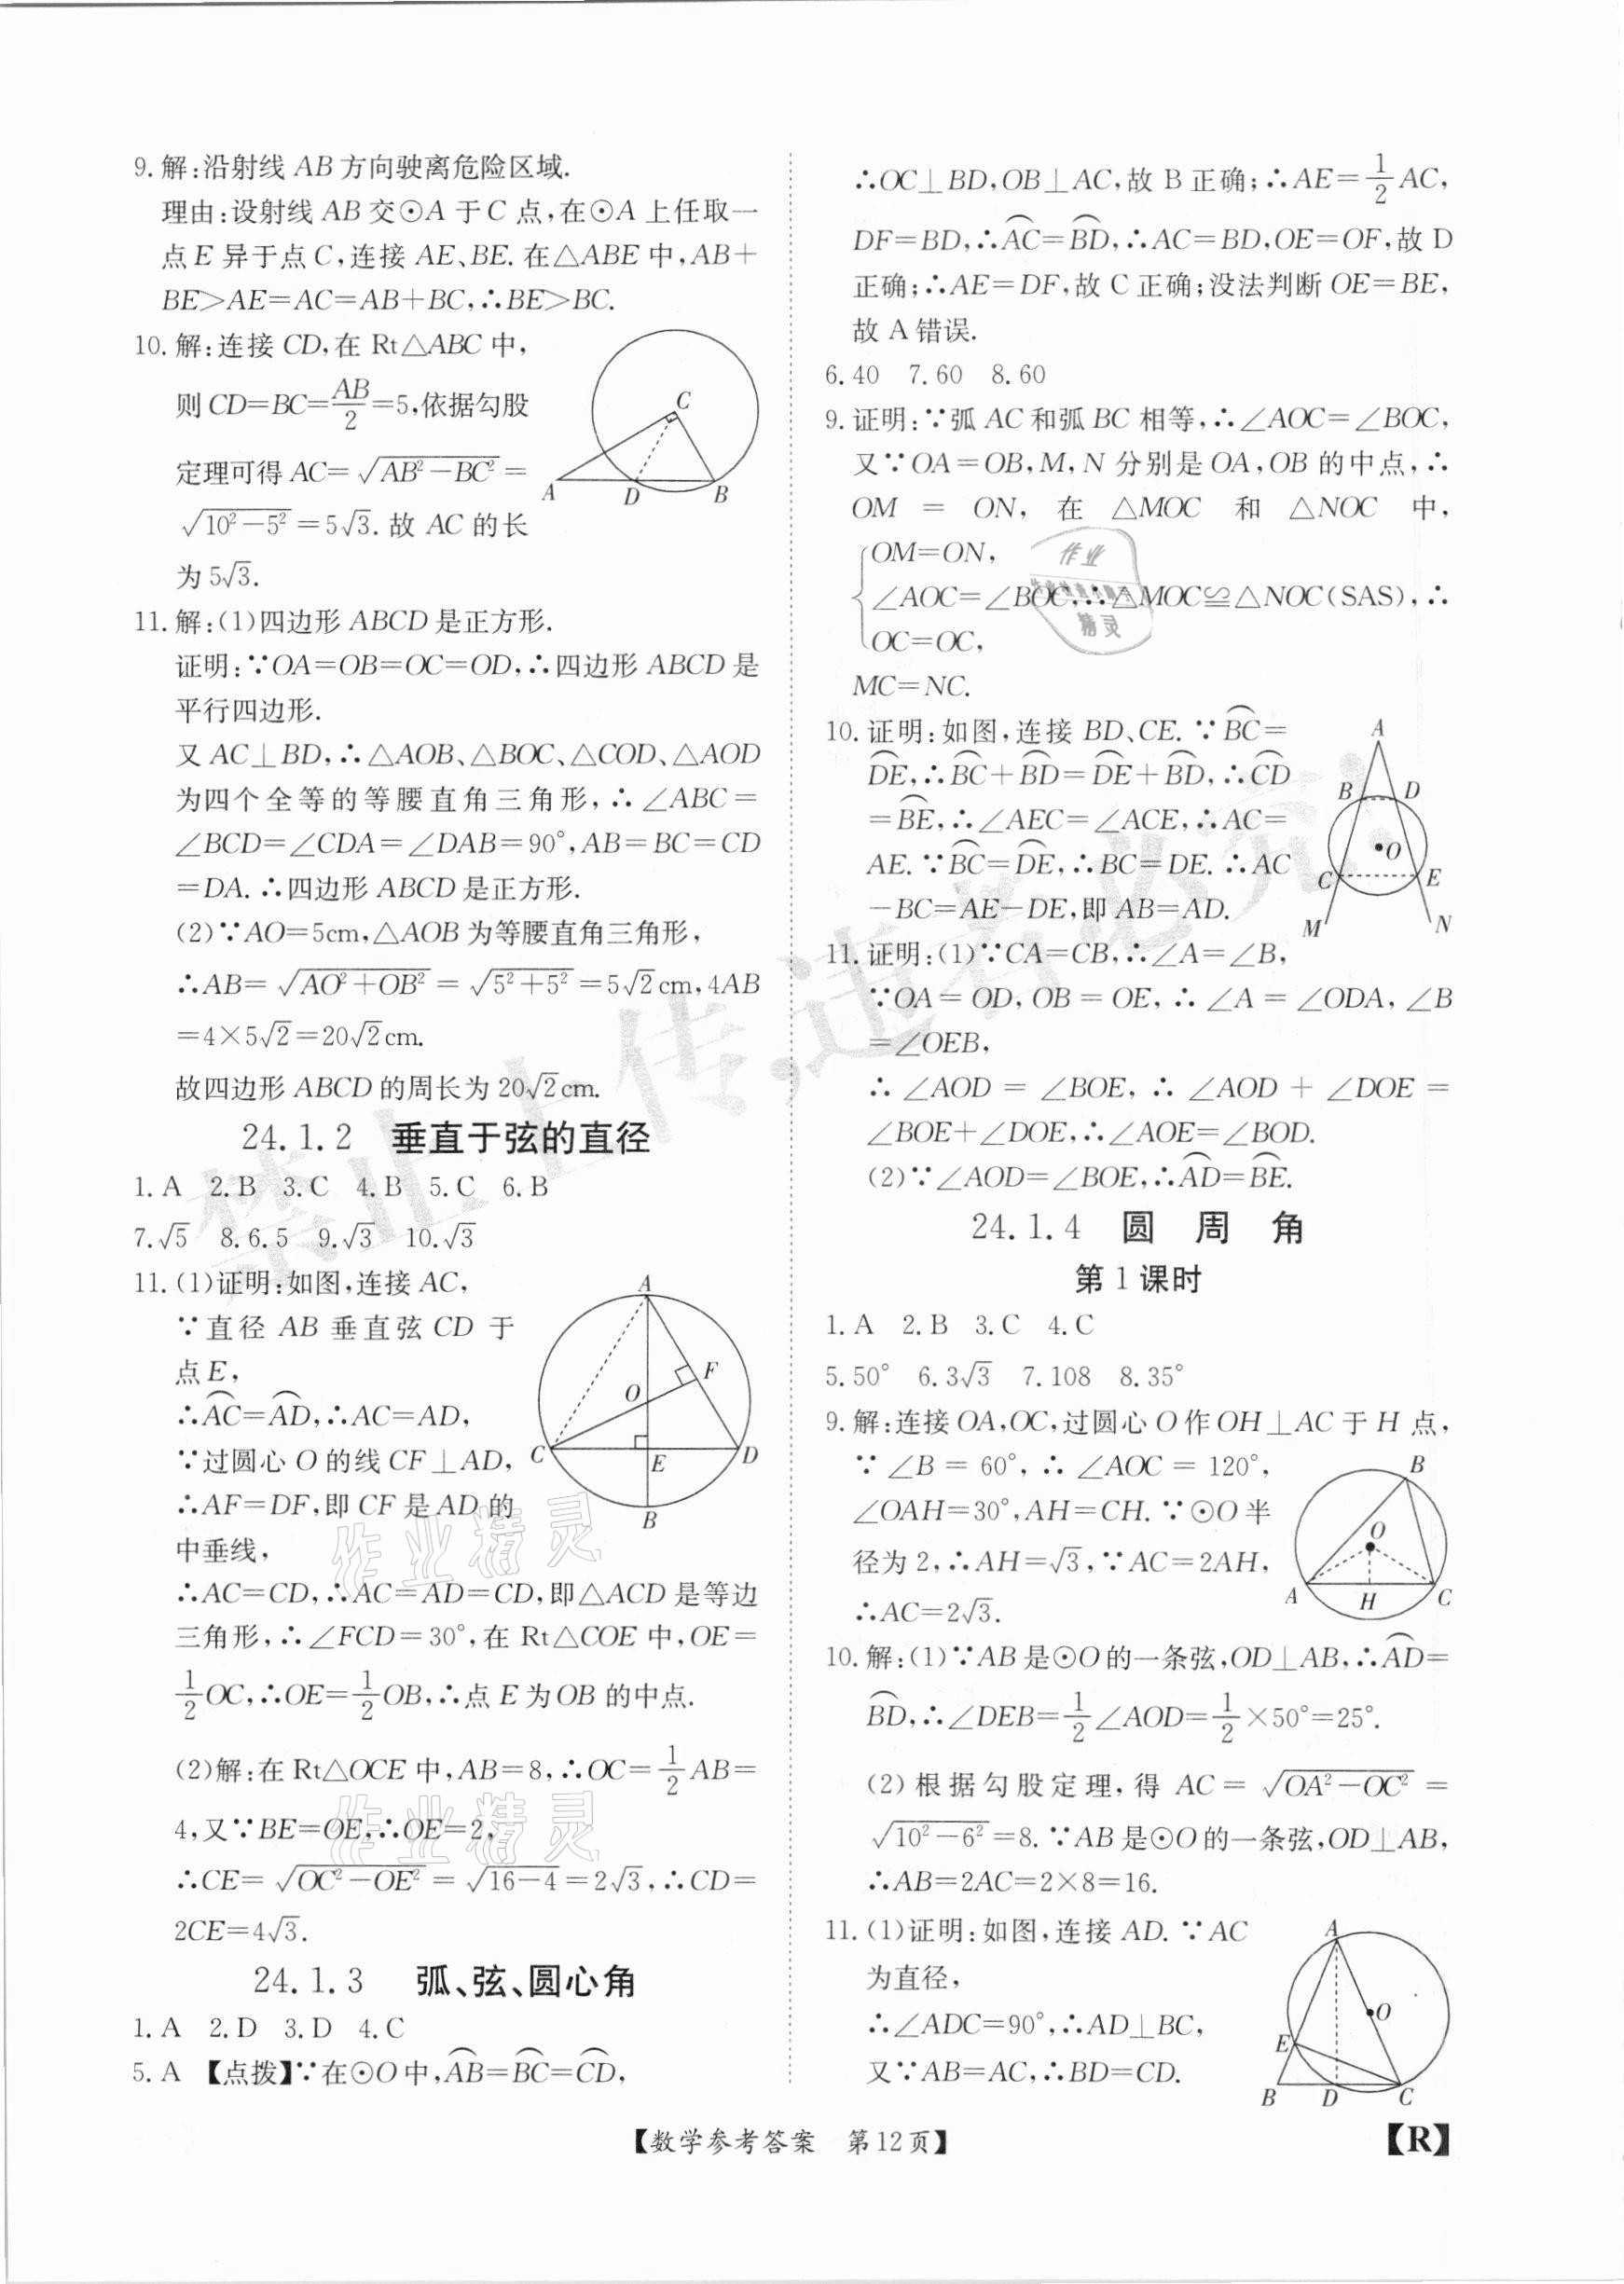 9.解:沿射线 AB 方向驶离危险区域.
理由:设射线 AB 交⊙A 于 C 点,在⊙A 上任取一
点 E 异于点 C,连接 AE、BE. 在△ABE 中,AB+
BE>AE=AC=AB+BC,∴BE>BC.
10.解:连接 CD,在 Rt△ABC 中,
则 CD=BC=AB/2=5,依据勾股
定理可得 AC=√(AB²-BC²)=
√(10²-5²)=5√3.故 AC 的长
为 5√3.
C
A
D
B
11.解:(1)四边形 ABCD 是正方形.
证明:∵OA=OB=OC=OD,∴四边形 ABCD 是
平行四边形.
又 AC⊥BD,∴△AOB、△BOC、△COD、△AOD
为四个全等的等腰直角三角形,∴∠ABC=
∠BCD=∠CDA=∠DAB=90°,AB=BC=CD
=DA.∴四边形 ABCD 是正方形.
(2)∵AO=5cm,△AOB 为等腰直角三角形,
∴AB=√(AO²+OB²)=√(5²+5²)=5√2cm,4AB
=4×5√2=20√2cm.
故四边形 ABCD 的周长为 20√2cm.
24.1.2 垂直于弦的直径
1.A 2.B 3.C 4.B 5.C 6.B
7.√5 8.6.5 9.√3 10.√3
11.(1)证明:如图,连接 AC,
∵直径 AB 垂直弦 CD 于
点 E,
∴A͡C=A͡D,∴AC=AD,
∵过圆心 O 的线 CF⊥AD,
∴AF=DF,即 CF 是 AD 的
中垂线,
A
F
O
C
E
D
B
∴AC=CD,∴AC=AD=CD,即△ACD 是等边
三角形,∴∠FCD=30°,在 Rt△COE 中,OE=
1/2OC,∴OE=1/2OB,∴点 E 为 OB 的中点.
(2)解:在 Rt△OCE 中,AB=8,∴OC=1/2AB=
4,又∵BE=OE,∴OE=2,
∴CE=√(OC²-OE²)=√(16-4)=2√3,∴CD=
2CE=4√3.
24.1.3 弧、弦、圆心角
1.A 2.D 3.D 4.C
5.A 【点拨】∵在⊙O 中,A͡B=B͡C=C͡D,
∴OC⊥BD,OB⊥AC,故 B 正确;∴AE=1/2AC,
DF=BD,∴A͡C=B͡D,∴AC=BD,OE=OF,故 D
正确;∴AE=DF,故 C 正确;没法判断 OE=BE,
故 A 错误.
6.40 7.60 8.60
9.证明:∵弧 AC 和弧 BC 相等,∴∠AOC=∠BOC,
又∵OA=OB,M,N 分别是 OA,OB 的中点,∴
OM = ON, 在 △MOC 和 △NOC 中,
OM=ON,
∠AOC=∠BOC,∴△MOC≌△NOC(SAS),∴
OC=OC,
MC=NC.
10.证明:如图,连接 BD、CE. ∵B͡C=
D͡E,∴B͡C+B͡D=D͡E+B͡D,∴C͡D
=B͡E,∴∠AEC=∠ACE,∴AC=
AE.∵B͡C=D͡E,∴BC=DE.∴AC
-BC=AE-DE,即 AB=AD.
A
B
D
O
C
E
M
N
11.证明:(1)∵CA=CB,∴∠A=∠B,
∵OA=OD,OB=OE,∴∠A=∠ODA,∠B
=∠OEB,
∴∠AOD=∠BOE,∴∠AOD+∠DOE=
∠BOE+∠DOE,∴∠AOE=∠BOD.
(2)∵∠AOD=∠BOE,∴A͡D=B͡E.
24.1.4 圆 周 角
第 1 课时
1.A 2.B 3.C 4.C
5.50° 6.3√3 7.108 8.35°
9.解:连接 OA,OC,过圆心 O 作 OH⊥AC 于 H 点,
∵∠B=60°,∴∠AOC=120°,
∠OAH=30°,AH=CH.∵⊙O 半
径为 2,∴AH=√3,∵AC=2AH,
∴AC=2√3.
B
O
A
H
C
10.解:(1)∵AB 是⊙O 的一条弦,OD⊥AB,∴A͡D=
B͡D,∴∠DEB=1/2∠AOD=1/2×50°=25°.
(2)根据勾股定理,得 AC=√(OA²-OC²)=
√(10²-6²)=8.∵AB 是⊙O 的一条弦,OD⊥AB,
∴AB=2AC=2×8=16.
11.(1)证明:如图,连接 AD. ∵AC
为直径,
∴∠ADC=90°,∴AD⊥BC,
又∵AB=AC,∴BD=CD.
A
O
E
B
D
C
【数学参考答案 第12页】
【R】
禁止上传,违者必究!
作业精灵
作业精灵
作业
精灵